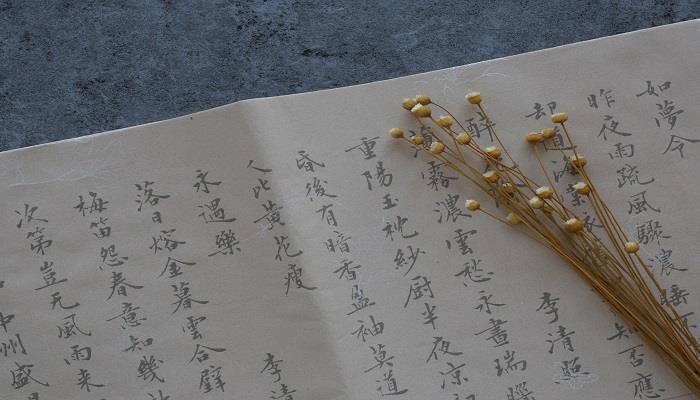 如夢令
昨夜雨疏風驟濃睡
却道海棠 知否應
醉 李清照
薄霧濃雲愁永晝瑞腦
重陽玉枕紗厨半夜凉初
昏後有暗香盈袖莫道
人比黃花瘦
永遇樂 李清
落日熔金暮雲合璧
梅笛怨春意知幾
次第豈无風雨來
中州盛